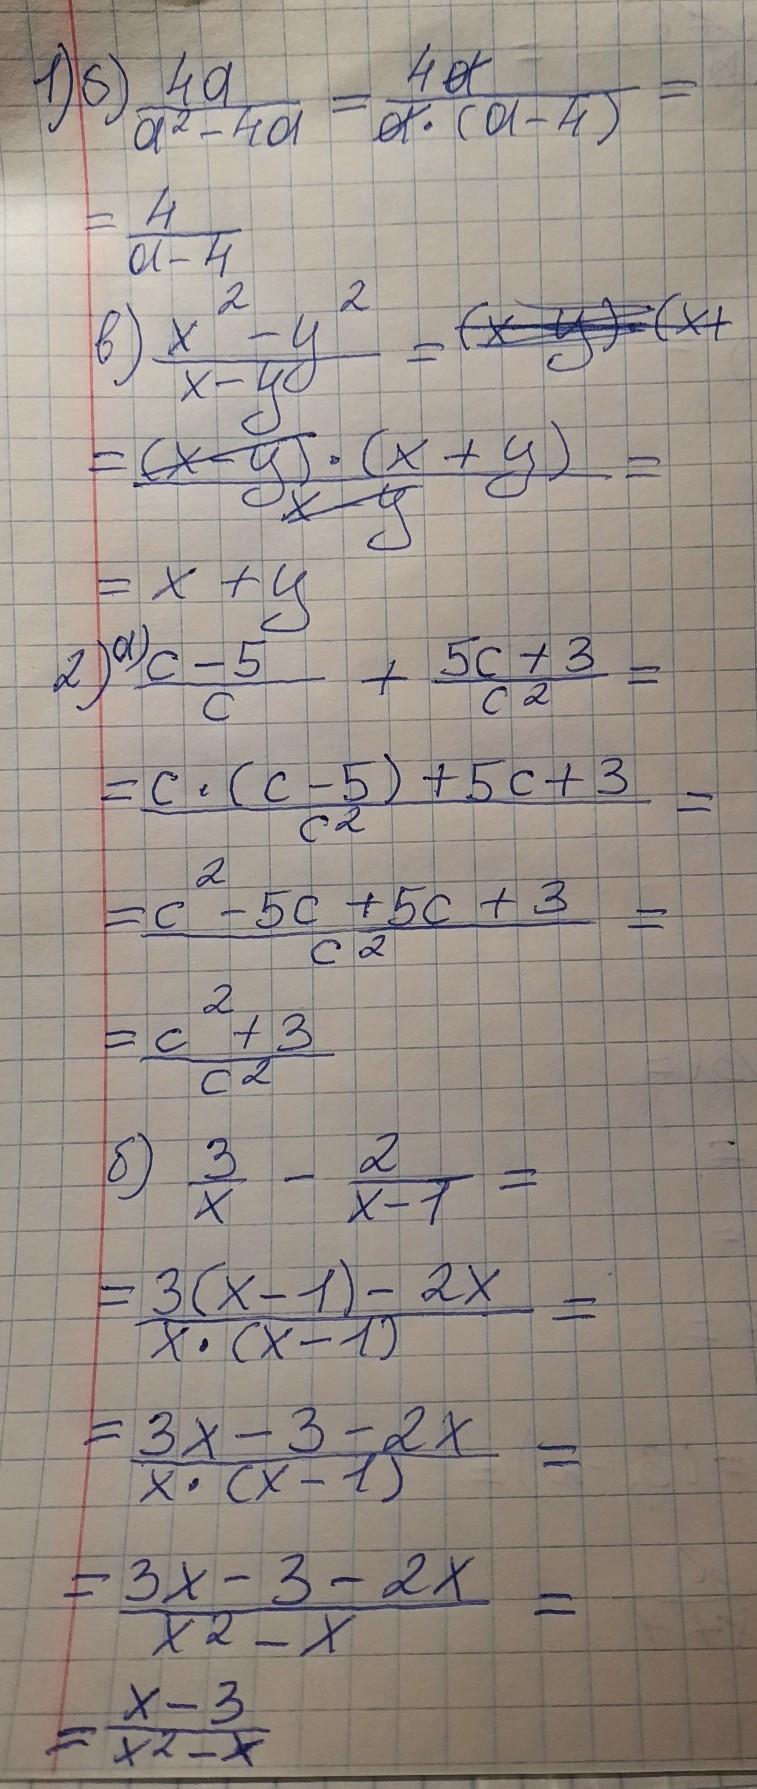 1) б) 4a / (a² - 4a) = 4a / (a · (a - 4)) =
= 4 / (a - 4)
в) (x² - y²) / (x - y) = (x - y) · (x +
= ((x - y) · (x + y)) / (x - y) =
= x + y
2) а) (c - 5) / c + (5c + 3) / c² =
= (c · (c - 5) + 5c + 3) / c² =
= (c² - 5c + 5c + 3) / c² =
= (c² + 3) / c²
б) 3 / x - 2 / (x - 1) =
= (3(x - 1) - 2x) / (x · (x - 1)) =
= (3x - 3 - 2x) / (x · (x - 1)) =
= (3x - 3 - 2x) / (x² - x) =
= (x - 3) / (x² - x)